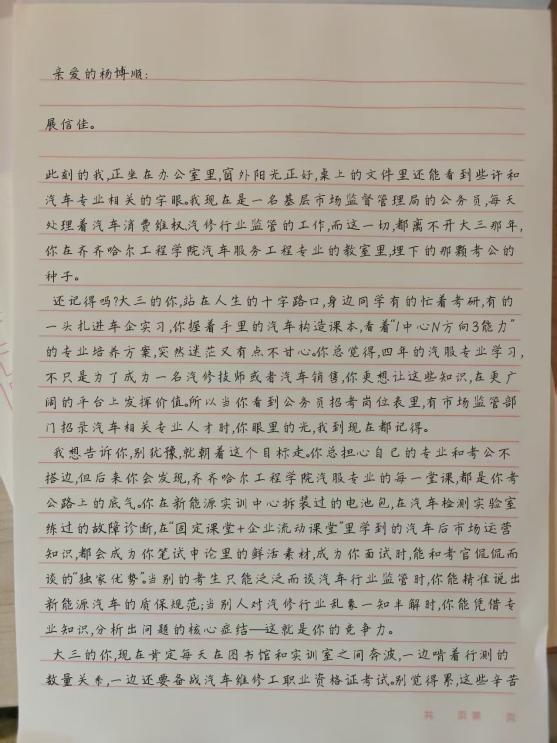 亲爱的杨博顺:
展信佳。
此刻的我,正坐在办公室里,窗外阳光正好,桌上的文件里还能看到些许和
汽车专业相关的字眼。我现在是一名基层市场监督管理局的公务员,每天
处理着汽车消费维权、汽修行业监管的工作,而这一切,都离不开大三那年,
你在齐齐哈尔工程学院汽车服务工程专业的教室里,埋下的那颗考公的
种子。
还记得吗?大三的你,站在人生的十字路口,身边同学有的忙着考研,有的
一头扎进车企实习,你握着手里的汽车构造课本,看着“1中心N方向3能力”
的专业培养方案,突然迷茫又有点不甘心。你总觉得,四年的汽服专业学习,
不只是为了成为一名汽修技师或者汽车销售,你更想让这些知识,在更广
阔的平台上发挥价值。所以当你看到公务员招考岗位表里,有市场监管部
门招录汽车相关专业人才时,你眼里的光,我到现在都记得。
我想告诉你,别犹豫,就朝着这个目标走。你总担心自己的专业和考公不
搭边,但后来你会发现,齐齐哈尔工程学院汽服专业的每一堂课,都是你考
公路上的底气。你在新能源实训中心拆装过的电池包,在汽车检测实验室
练过的故障诊断,在“固定课堂+企业流动课堂”里学到的汽车后市场运营
知识,都会成为你笔试申论里的鲜活素材,成为你面试时,能和考官侃侃而
谈的“独家优势”。当别的考生只能泛泛而谈汽车行业监管时,你能精准说出
新能源汽车的质保规范;当别人对汽修行业乱象一知半解时,你能凭借专
业知识,分析出问题的核心症结——这就是你的竞争力。
大三的你,现在肯定每天在图书馆和实训室之间奔波,一边啃着行测的
数量关系,一边还要备战汽车维修工职业资格证考试。别觉得累,这些辛苦
共 页 第 页